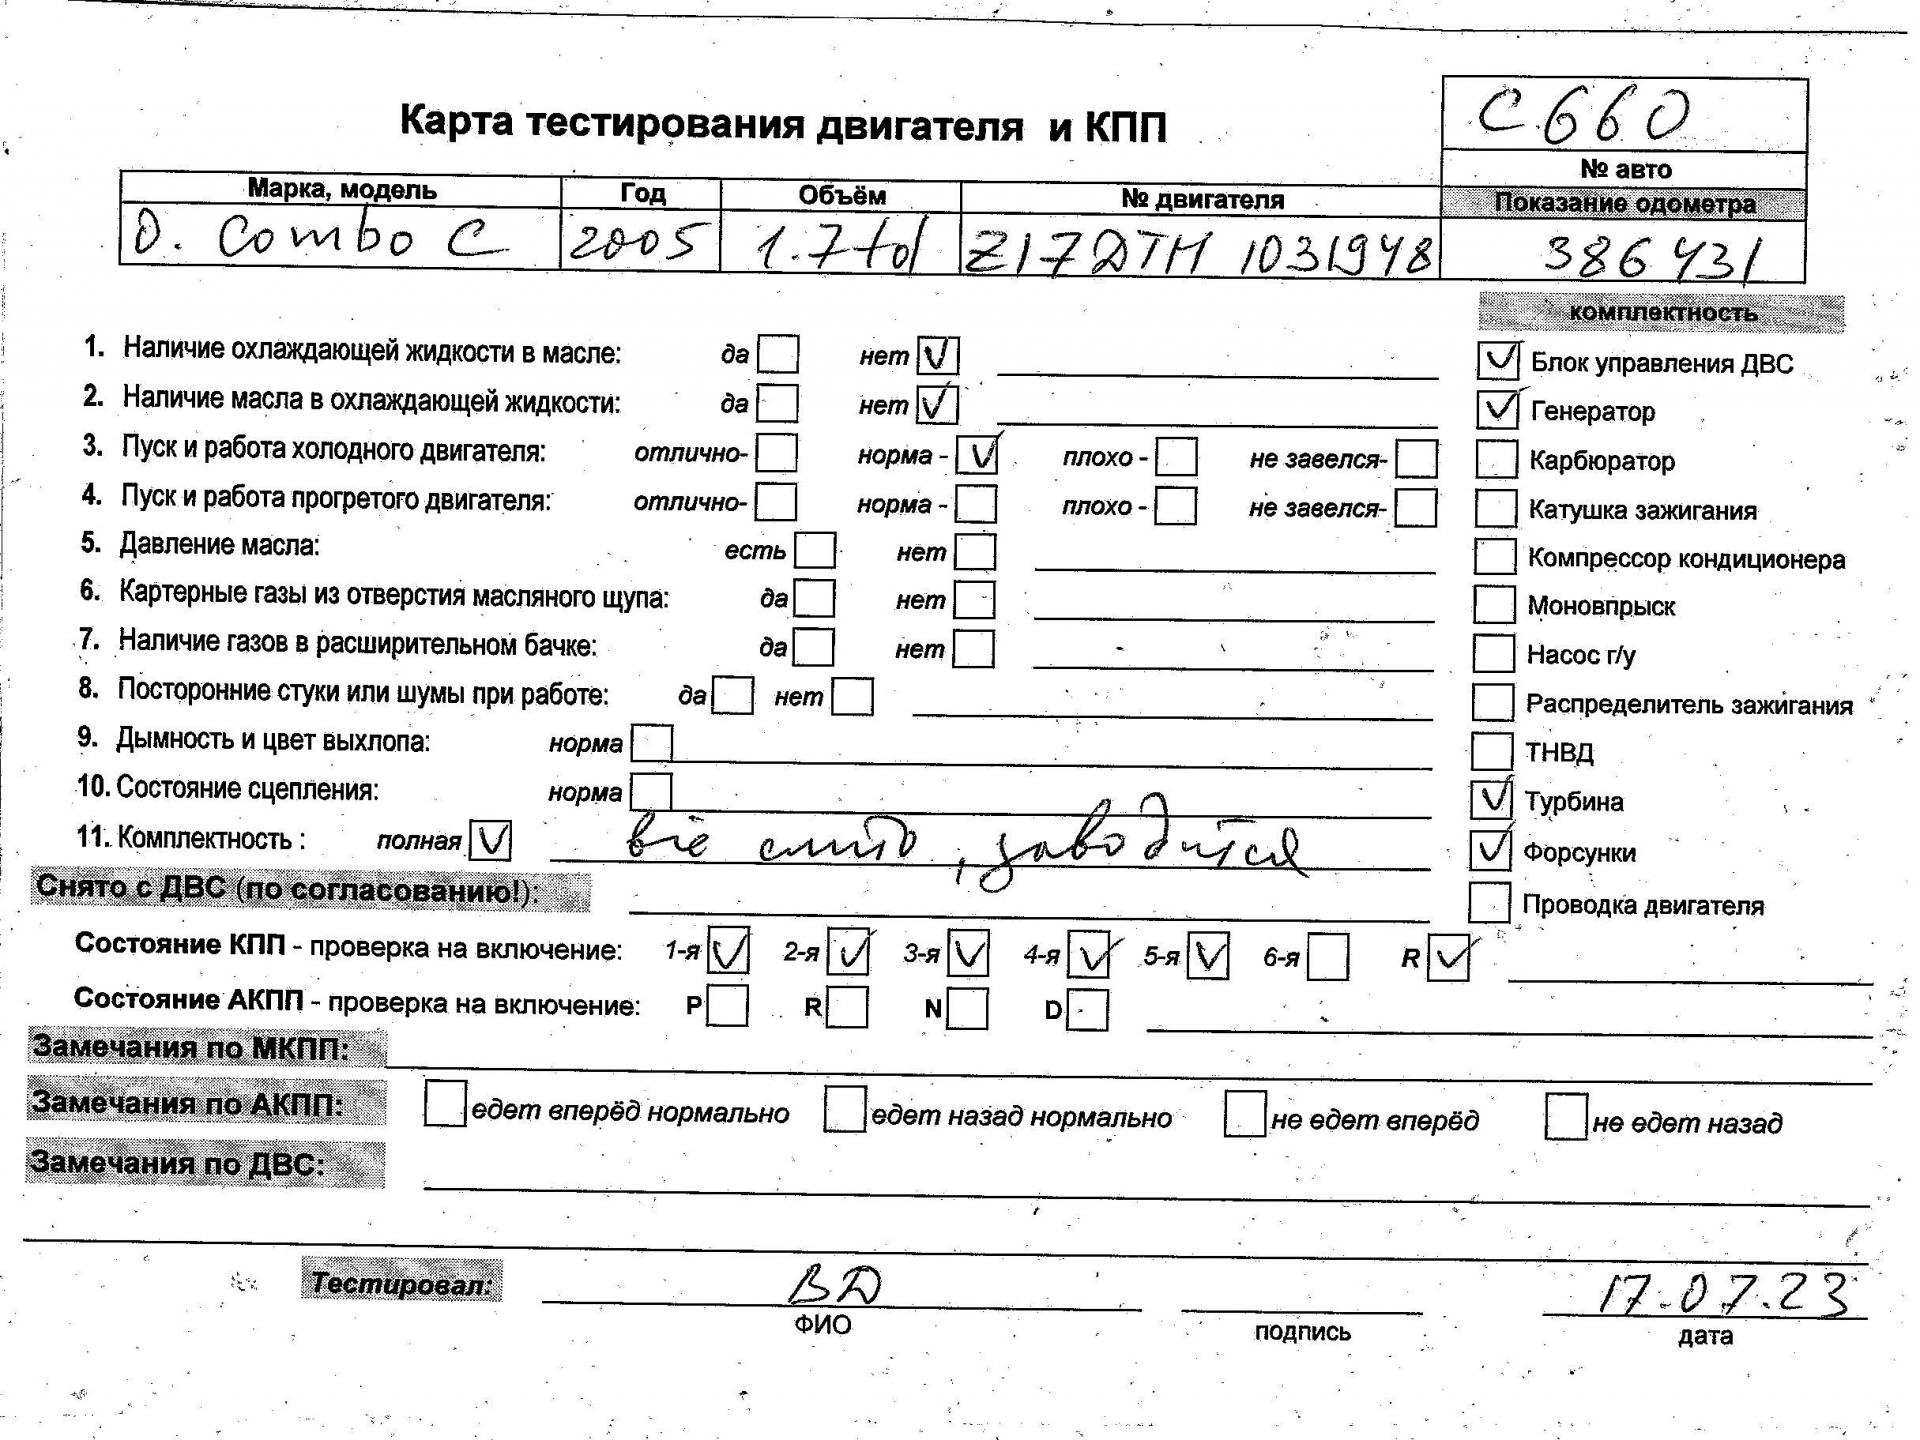 С660
Карта тестирования двигателя и КПП
№ авто
Марка, модель Год Объём № двигателя Показание одометра
O. Combo C 2005 1.7td Z17DTH 1031948 386431
комплектность
1. Наличие охлаждающей жидкости в масле: да нет Блок управления ДВС
2. Наличие масла в охлаждающей жидкости: да нет Генератор
3. Пуск и работа холодного двигателя: отлично- норма - плохо - не завелся- Карбюратор
4. Пуск и работа прогретого двигателя: отлично- норма - плохо - не завелся- Катушка зажигания
5. Давление масла: есть нет Компрессор кондиционера
6. Картерные газы из отверстия масляного щупа: да нет Моновпрыск
7. Наличие газов в расширительном бачке: да нет Насос г/у
8. Посторонние стуки или шумы при работе: да нет Распределитель зажигания
9. Дымность и цвет выхлопа: норма ТНВД
10. Состояние сцепления: норма Турбина
11. Комплектность : полная все слито, заводится Форсунки
Снято с ДВС (по согласованию!): Проводка двигателя
Состояние КПП - проверка на включение: 1-я 2-я 3-я 4-я 5-я 6-я R
Состояние АКПП - проверка на включение: P R N D
Замечания по МКПП:
Замечания по АКПП: едет вперёд нормально едет назад нормально не едет вперёд не едет назад
Замечания по ДВС:
Тестировал: ВД 17.07.23
ФИО подпись дата